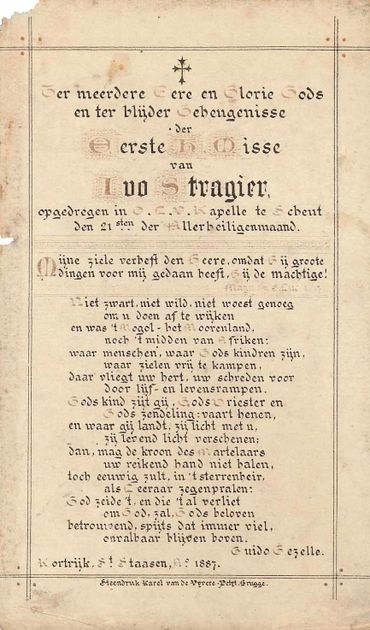 Ter meerdere Eere en Glorie Gods
en ter blijder Geheugenisse
der
Eerste H Misse
van
Ivo Stragier,
opgedregen in O.L.V. Kapelle te Scheut
den 21sten der Allerheiligenmaand.
Mijne ziele verheft den Heere, omdat Hij groote
dingen voor mij gedaan heeft, Hij de machtige!
Niet zwart, niet wild, niet woest genoeg
om u doen af te wijken
en was 't Mogol- het Moorenland,
noch 't midden van Afriken:
waar menschen, waar Gods kindren zijn,
waar zielen vrij te kampen,
daar vliegt uw hert, uw schreden voor
door lijf- en levensrampen.
Gods kind zijt gij, Gods Priester en
Gods zendeling: vaart henen,
en waar gij landt, zij licht met u,
zij levend licht verschenen;
dan, mag de kroon des Martelaars
uw reikend hand niet halen,
toch eeuwig zult, in 't sterrenheir,
als Leeraar zegenpralen:
God zeide 't, en die 't al verliet
om God, zal, Gods beloven
betrouwend, spijts dat immer viel,
onvalbaar blijven boven.
Guido Gezelle.
Kortrijk, St Staasen, Ao 1887.
Steendruk Karel van de Vyvere-Petyt, Brugge.